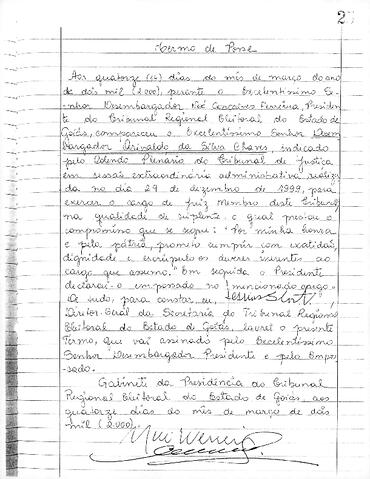 27
Termo de Posse
Aos quatorze (14) dias do mês de março do ano
de dois mil (2.000), perante o Excelentíssimo Se-
nhor Desembargador Noé Gonçalves Ferreira, Presiden-
te do Tribunal Regional Eleitoral do Estado de
Goiás, compareceu o Excelentíssimo Senhor Desem-
bargador Arivaldo da Silva Chaves, indicado
pelo Colendo Plenário do Tribunal de Justiça
em sessão extraordinária administrativa realiza-
da no dia 29 de dezembro de 1999, para
exercer o cargo de juiz Membro deste Tribunal
na qualidade de suplente, o qual prestou o
compromisso que se segue: "Por minha honra
e pela pátria, prometo cumprir com exatidão,
dignidade e escrúpulo os deveres inerentes ao
cargo que assumo." Em seguida o Presidente
declarou o empossado no mencionado cargo.
De tudo, para constar, eu,
Diretor-Geral da Secretaria do Tribunal Regional
Eleitoral do Estado de Goiás, lavrei o presente
Termo, que vai assinado pelo Excelentíssimo
Senhor Desembargador Presidente e pelo Empos-
sado.
Gabinete da Presidência do Tribunal
Regional Eleitoral do Estado de Goiás, aos
quatorze dias do mês de março de dois
mil (2.000).